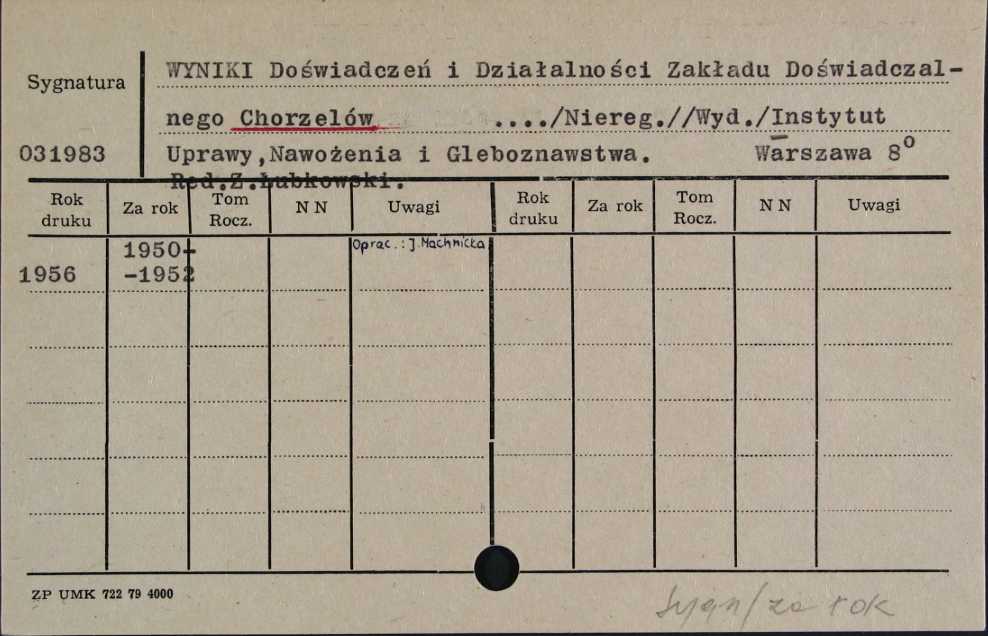 Sygnatura
WYNIKI Doświadczeń i Działalności Zakładu Doświadczal-
nego Chorzelów ..../Niereg.//Wyd./Instytut
031983
Uprawy,Nawożenia i Gleboznawstwa. Warszawa 8⁰
Red.Z.Łubkowski.
Rok druku Za rok Tom Rocz. N N Uwagi Rok druku Za rok Tom Rocz. N N Uwagi
1950- Oprac.: J. Machnicka
1956 -1952
ZP UMK 722 79 4000
Sygn/za rok